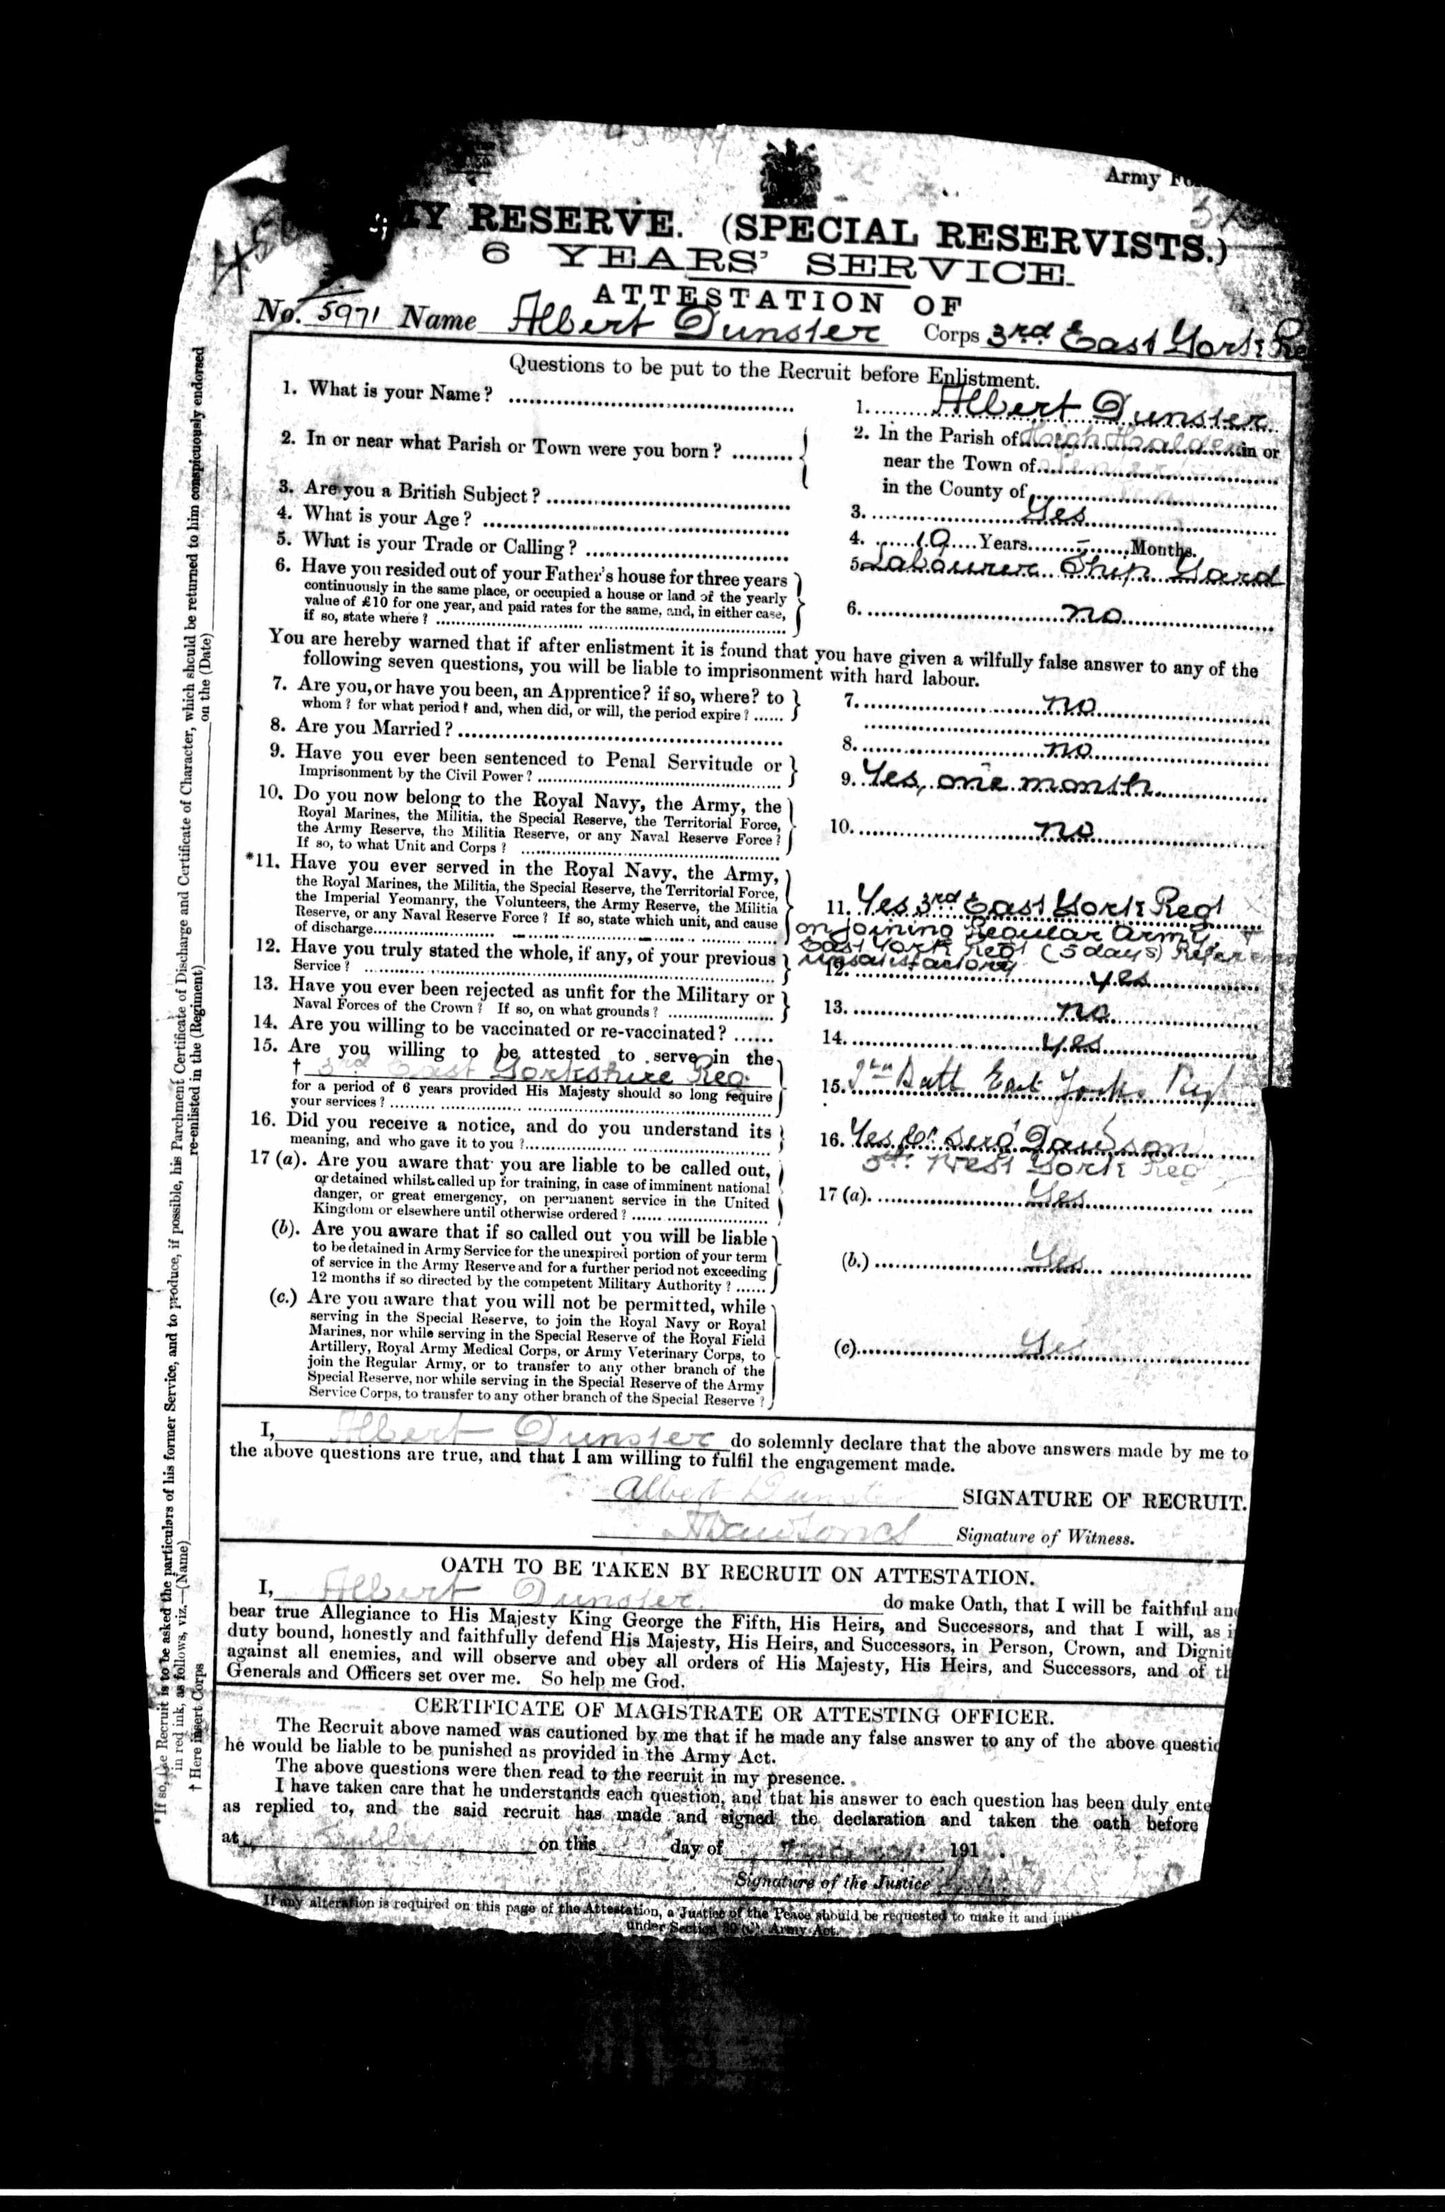 Army
RESERVE. (SPECIAL RESERVISTS.)
6 YEARS' SERVICE.
ATTESTATION OF
No. 5971 Name Albert Dunster Corps 3rd East York Re
Questions to be put to the Recruit before Enlistment.
1. What is your Name? 1. Albert Dunster
2. In or near what Parish or Town were you born? 2. In the Parish of High Halden in or
near the Town of
in the County of
3. Are you a British Subject? 3. Yes
4. What is your Age? 4. 19 Years Months.
5. What is your Trade or Calling? 5. Labourer Ship Yard
6. Have you resided out of your Father's house for three years
continuously in the same place, or occupied a house or land of the yearly
value of £10 for one year, and paid rates for the same, and, in either case,
if so, state where? 6. no
You are hereby warned that if after enlistment it is found that you have given a wilfully false answer to any of the
following seven questions, you will be liable to imprisonment with hard labour.
7. Are you, or have you been, an Apprentice? if so, where? to
whom? for what period? and, when did, or will, the period expire? 7. no
8. Are you Married? 8. no
9. Have you ever been sentenced to Penal Servitude or
Imprisonment by the Civil Power? 9. Yes, one month
10. Do you now belong to the Royal Navy, the Army, the
Royal Marines, the Militia, the Special Reserve, the Territorial Force,
the Army Reserve, the Militia Reserve, or any Naval Reserve Force?
If so, to what Unit and Corps? 10. no
*11. Have you ever served in the Royal Navy, the Army,
the Royal Marines, the Militia, the Special Reserve, the Territorial Force,
the Imperial Yeomanry, the Volunteers, the Army Reserve, the Militia
Reserve, or any Naval Reserve Force? If so, state which unit, and cause
of discharge 11. Yes 3rd East York Regt
on joining Regular Army,
East York Regt (5 days)
unsatisfactory
12. Have you truly stated the whole, if any, of your previous
Service? 12. yes
13. Have you ever been rejected as unfit for the Military or
Naval Forces of the Crown? If so, on what grounds? 13. no
14. Are you willing to be vaccinated or re-vaccinated? 14. yes
15. Are you willing to be attested to serve in the
† 3rd East Yorkshire Reg.
for a period of 6 years provided His Majesty should so long require
your services? 15. Batt East Yorks
16. Did you receive a notice, and do you understand its
meaning, and who gave it to you? 16. Yes Dawson
West York Reg
17 (a). Are you aware that you are liable to be called out,
or detained whilst called up for training, in case of imminent national
danger, or great emergency, on permanent service in the United
Kingdom or elsewhere until otherwise ordered? 17 (a). Yes
(b). Are you aware that if so called out you will be liable
to be detained in Army Service for the unexpired portion of your term
of service in the Army Reserve and for a further period not exceeding
12 months if so directed by the competent Military Authority? (b.) Yes
(c.) Are you aware that you will not be permitted, while
serving in the Special Reserve, to join the Royal Navy or Royal
Marines, nor while serving in the Special Reserve of the Royal Field
Artillery, Royal Army Medical Corps, or Army Veterinary Corps, to
join the Regular Army, or to transfer to any other branch of the
Special Reserve, nor while serving in the Special Reserve of the Army
Service Corps, to transfer to any other branch of the Special Reserve? (c) Yes
I, Albert Dunster do solemnly declare that the above answers made by me to
the above questions are true, and that I am willing to fulfil the engagement made.
Albert Dunster SIGNATURE OF RECRUIT.
Signature of Witness.
OATH TO BE TAKEN BY RECRUIT ON ATTESTATION.
I, Albert Dunster do make Oath, that I will be faithful and
bear true Allegiance to His Majesty King George the Fifth, His Heirs, and Successors, and that I will, as i
duty bound, honestly and faithfully defend His Majesty, His Heirs, and Successors, in Person, Crown, and Dignit
against all enemies, and will observe and obey all orders of His Majesty, His Heirs, and Successors, and of th
Generals and Officers set over me. So help me God.
CERTIFICATE OF MAGISTRATE OR ATTESTING OFFICER.
The Recruit above named was cautioned by me that if he made any false answer to any of the above questio
he would be liable to be punished as provided in the Army Act.
The above questions were then read to the recruit in my presence.
I have taken care that he understands each question, and that his answer to each question has been duly ente
as replied to, and the said recruit has made and signed the declaration and taken the oath before
at on this day of 191
Signature of the Justice
If any alteration is required on this page of the Attestation, a Justice of the Peace should be requested to make it and
under Section Army Act.
If so, the Recruit is to be asked the particulars of his former Service, and to produce, if possible, his Parchment Certificate of Discharge and Certificate of Character, which should be returned to him conspicuously endorsed
in red ink, as follows, viz.—(Name) re-enlisted in the (Regiment) on the (Date)
† Here insert Corps